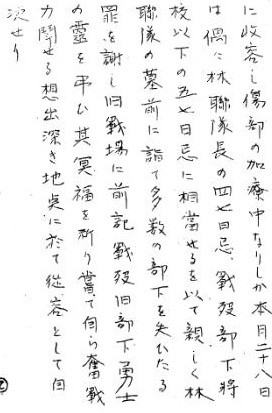 に收容し傷部の加療中なりしか本月二十八日
は偶々林聯隊長の四七日忌戰歿部下將
校以下の五七日忌に相當せるを以て親しく林
聯隊の墓前に詣て多数の部下を失ひたる
罪を謝し旧戰場に前記戰歿旧部下勇士
の靈を弔ひ其冥福を祈り嘗て自ら奮戰
力鬪せる想出深き地点に於て従容として自
決せり